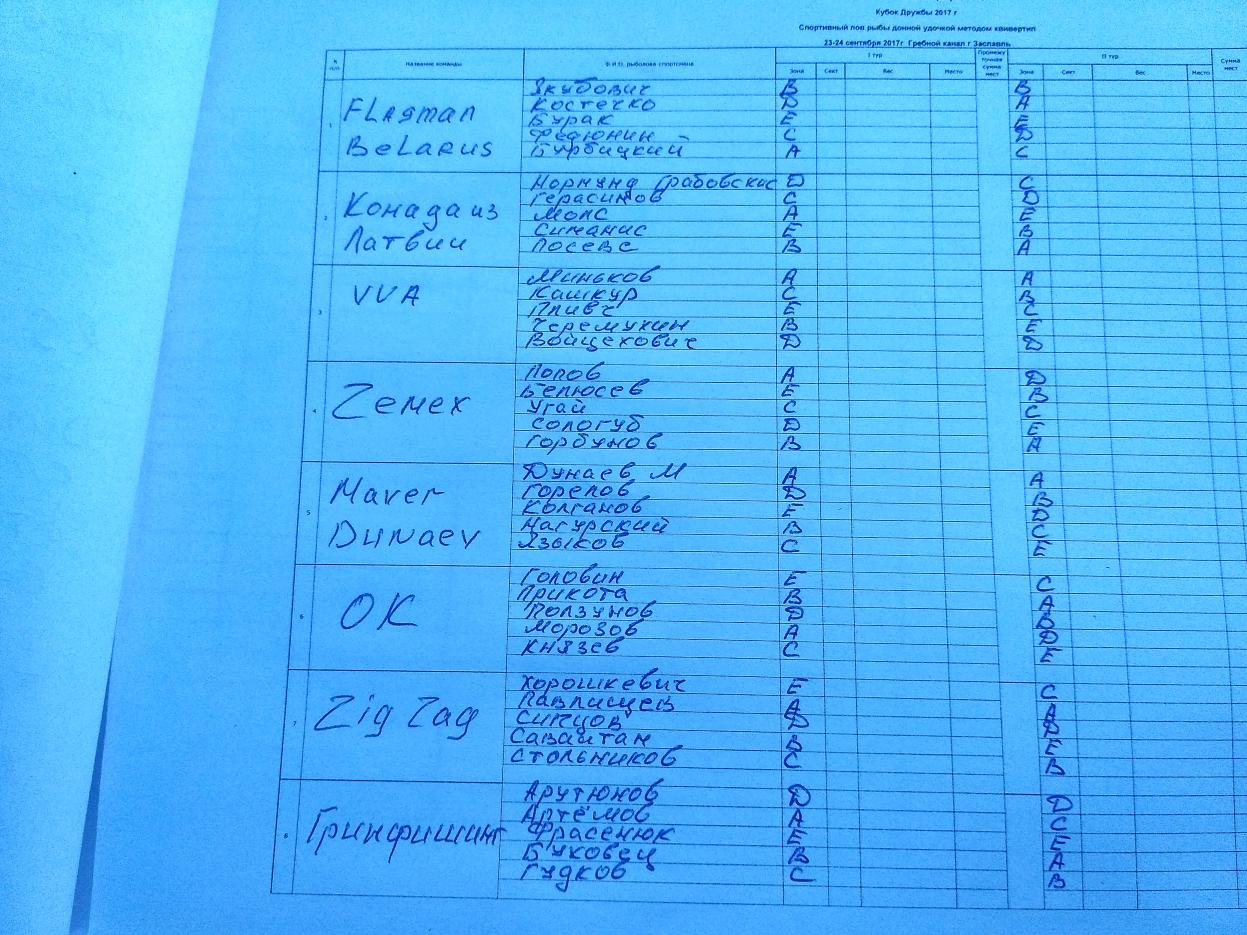 Кубок Дружбы 2017 г
Спортивный лов рыбы донной удочкой методом квивертип
23-24 сентября 2017г Гребной канал г Заславль
Название команды Ф.И.О. рыболова спортсмена I тур Промежуточная сумма мест II тур Сумма мест
Зона Сект Вес Место Зона Сект Вес Место
1 Flagman Belarus
Якубович B B
Костечко D A
Бурак E E
Федюнин C D
Бурбицкий A C
2 Конада из Латвии
Нормунд Грабовскис D C
Герасимов C D
Мопс A E
Симанис E B
Посевс B A
3 VVA
Миньков A A
Кашкур C B
Пливч E C
Черемухин B E
Войцехович D D
4 Zemex
Попов A D
Белюсев E B
Угай C C
Сологуб D E
Горбунов B A
5 Maver Dunaev
Дунаев М A A
Горелов D B
Колганов E D
Нагурский B C
Языков C E
6 ОК
Головин E C
Прикота B A
Ползунов D B
Морозов A D
Князев C E
7 Zig Zag
Хорошкевич E C
Павлисцев A A
Сипцов D D
Савайтан B E
Стольников C B
8 Гринфишинг
Арутюнов D D
Артёмов A C
Фрасенюк E E
Буковец B A
Гудков C B